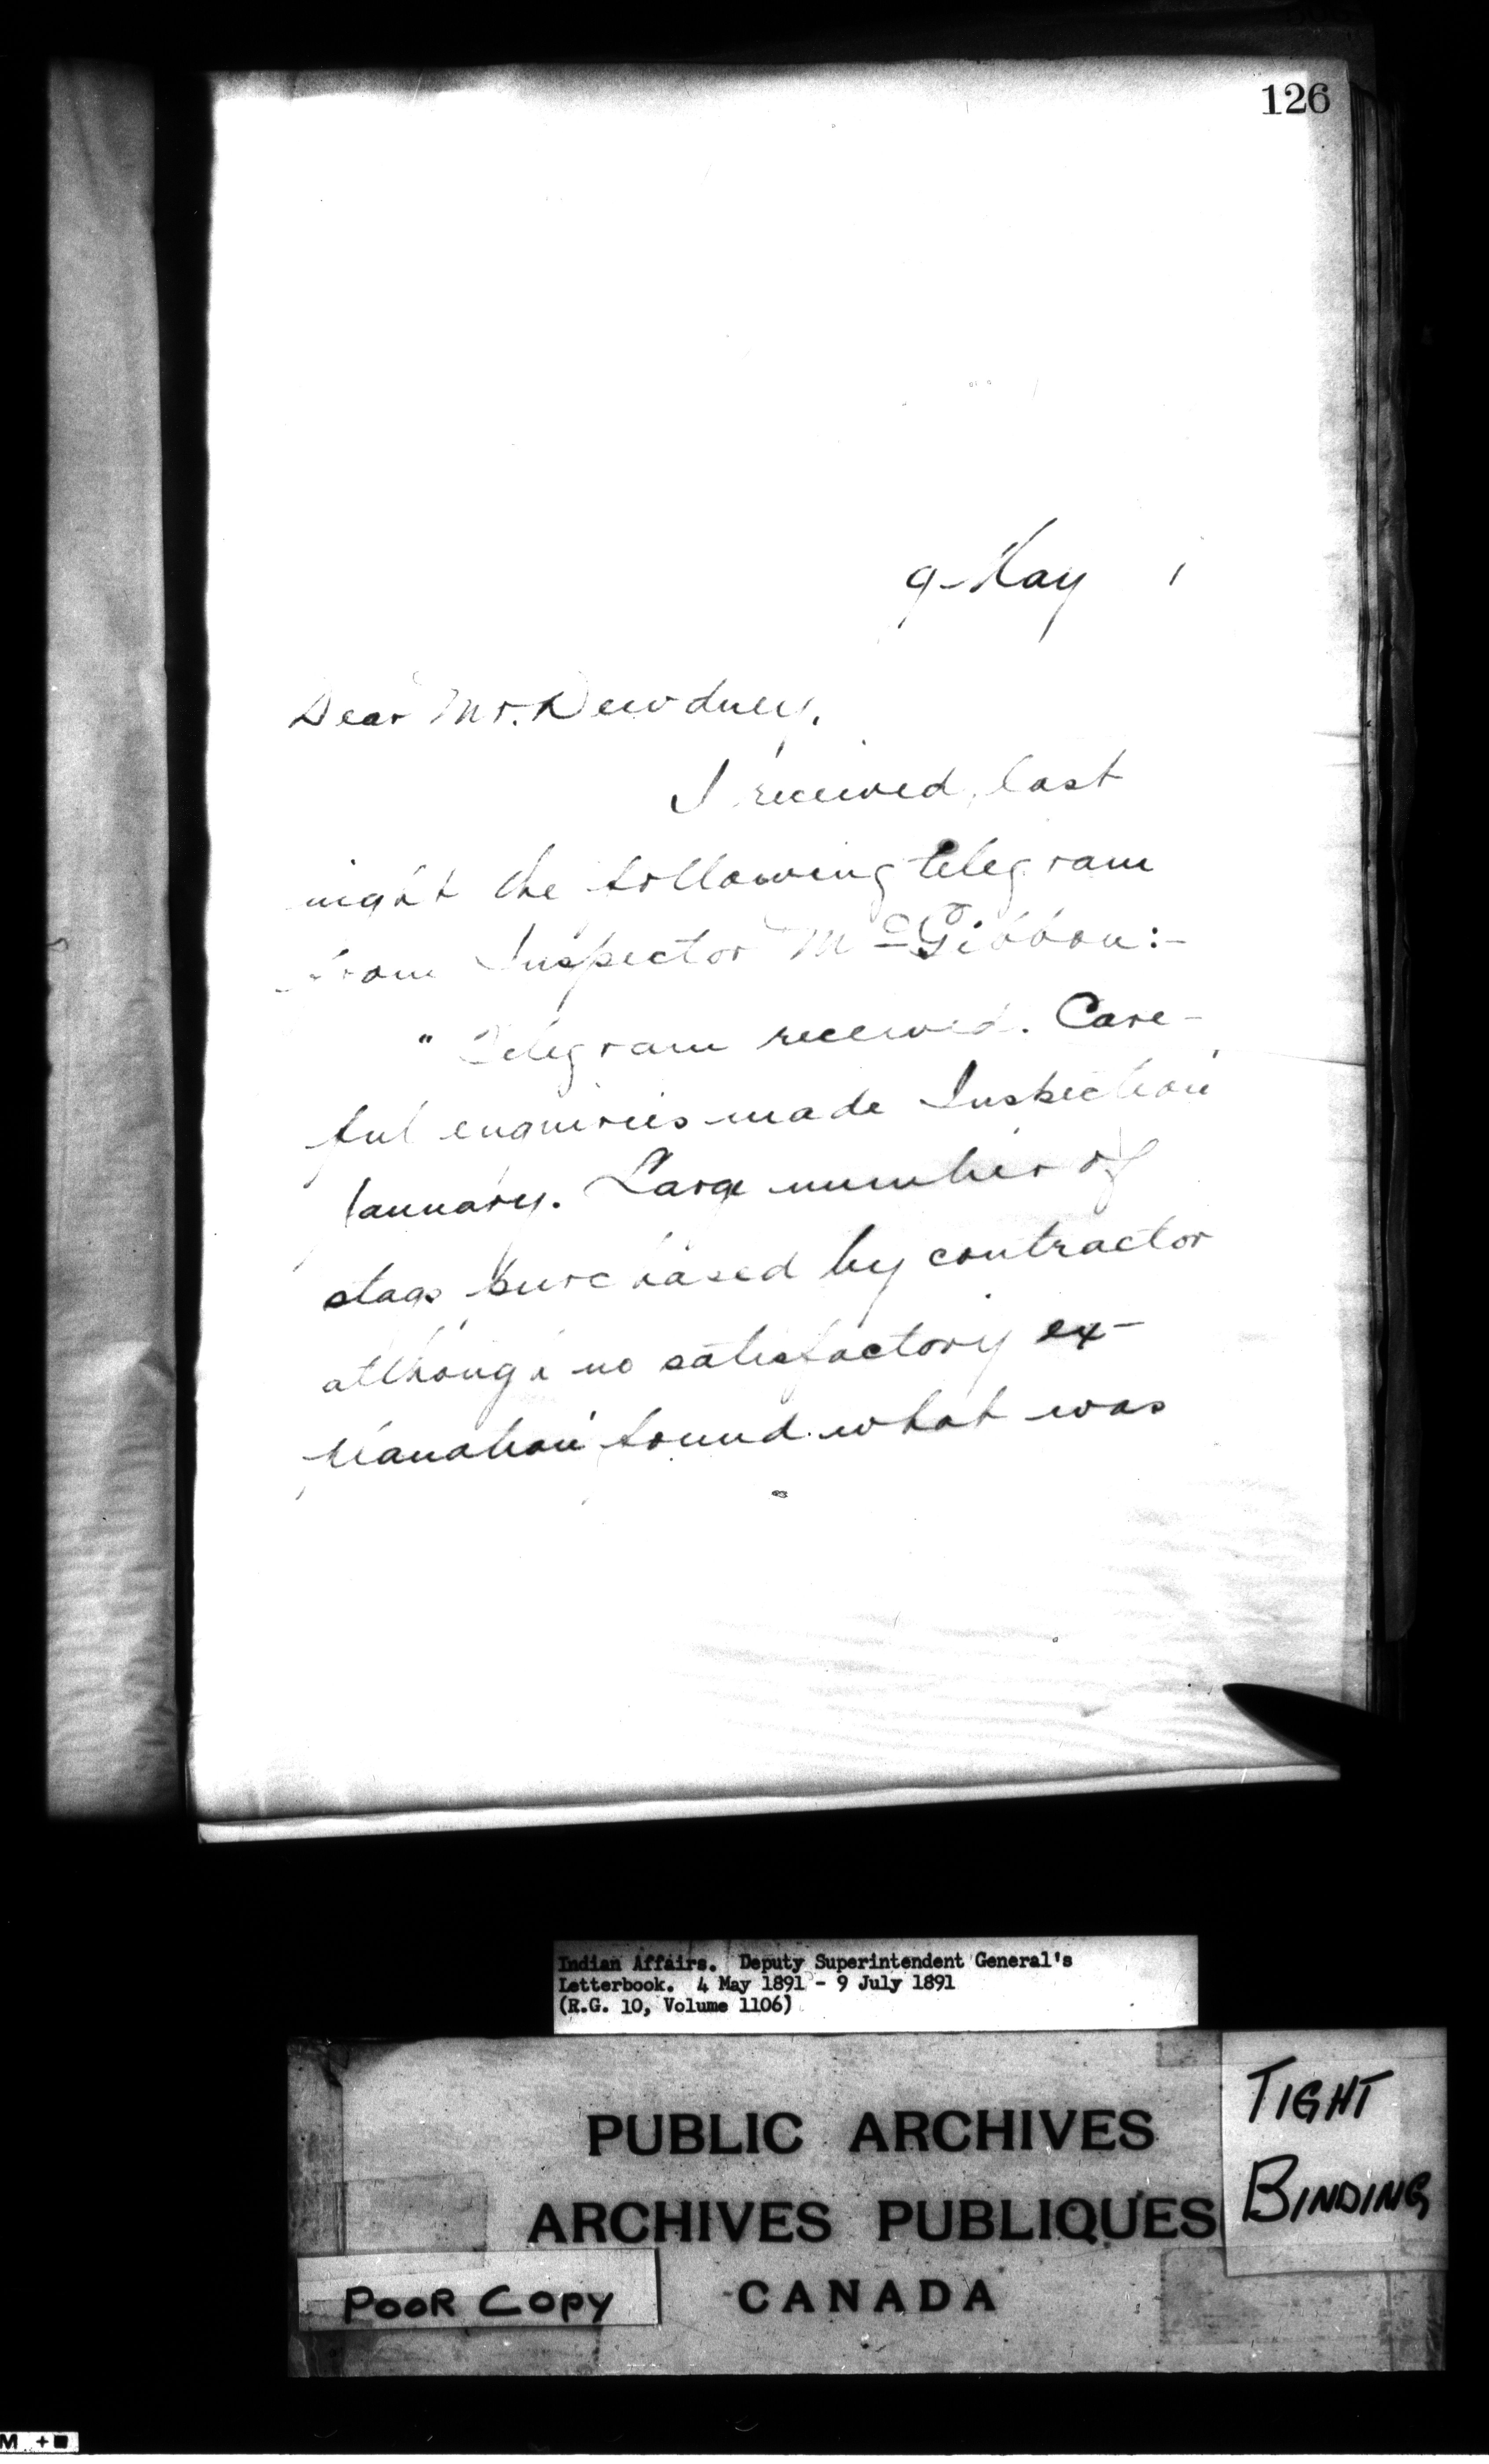 126
9 May 1
Dear Mr. Dewdney,
I received, last
night the following telegram
from Inspector McGibbon:-
" Telegram received. Care-
ful enquiries made Inspection
January. Large number of
stags purchased by contractor
although no satisfactory ex-
planation found what was
Indian Affairs. Deputy Superintendent General's
Letterbook. 4 May 1891 - 9 July 1891
(R.G. 10, Volume 1106)
PUBLIC ARCHIVES
ARCHIVES PUBLIQUES
CANADA
TIGHT
BINDING
POOR COPY
M +■